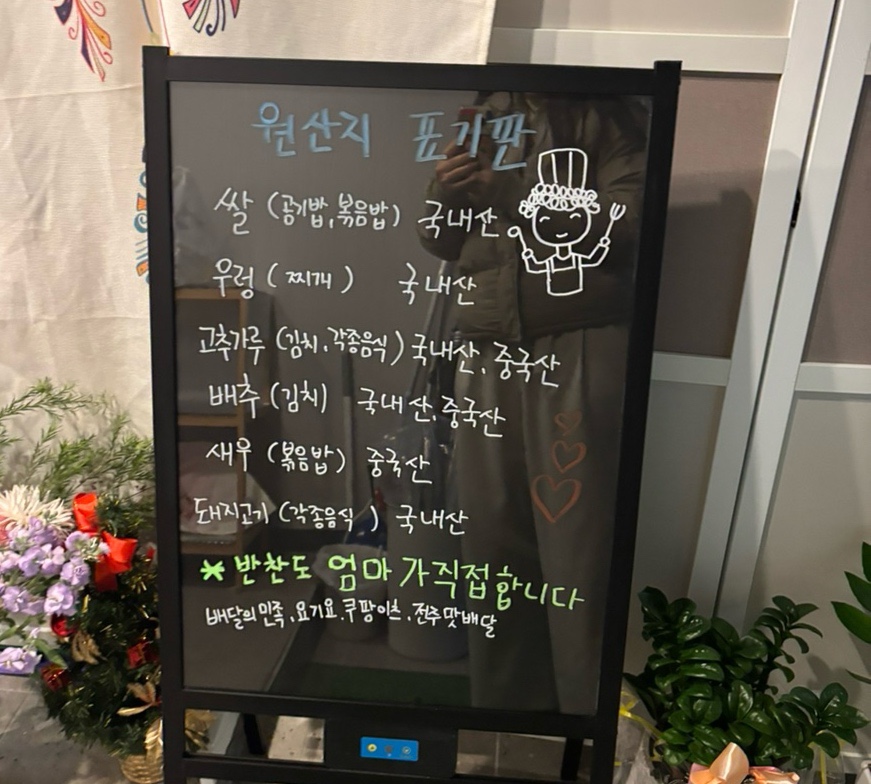 원산지 표기판
쌀 (공기밥,볶음밥) 국내산
우렁 (찌개) 국내산
고추가루 (김치,각종음식) 국내산, 중국산
배추 (김치) 국내산,중국산
새우 (볶음밥) 중국산
돼지고기 (각종음식) 국내산
* 반찬도 엄마가직접합니다
배달의민족,요기요,쿠팡이츠,전주맛배달